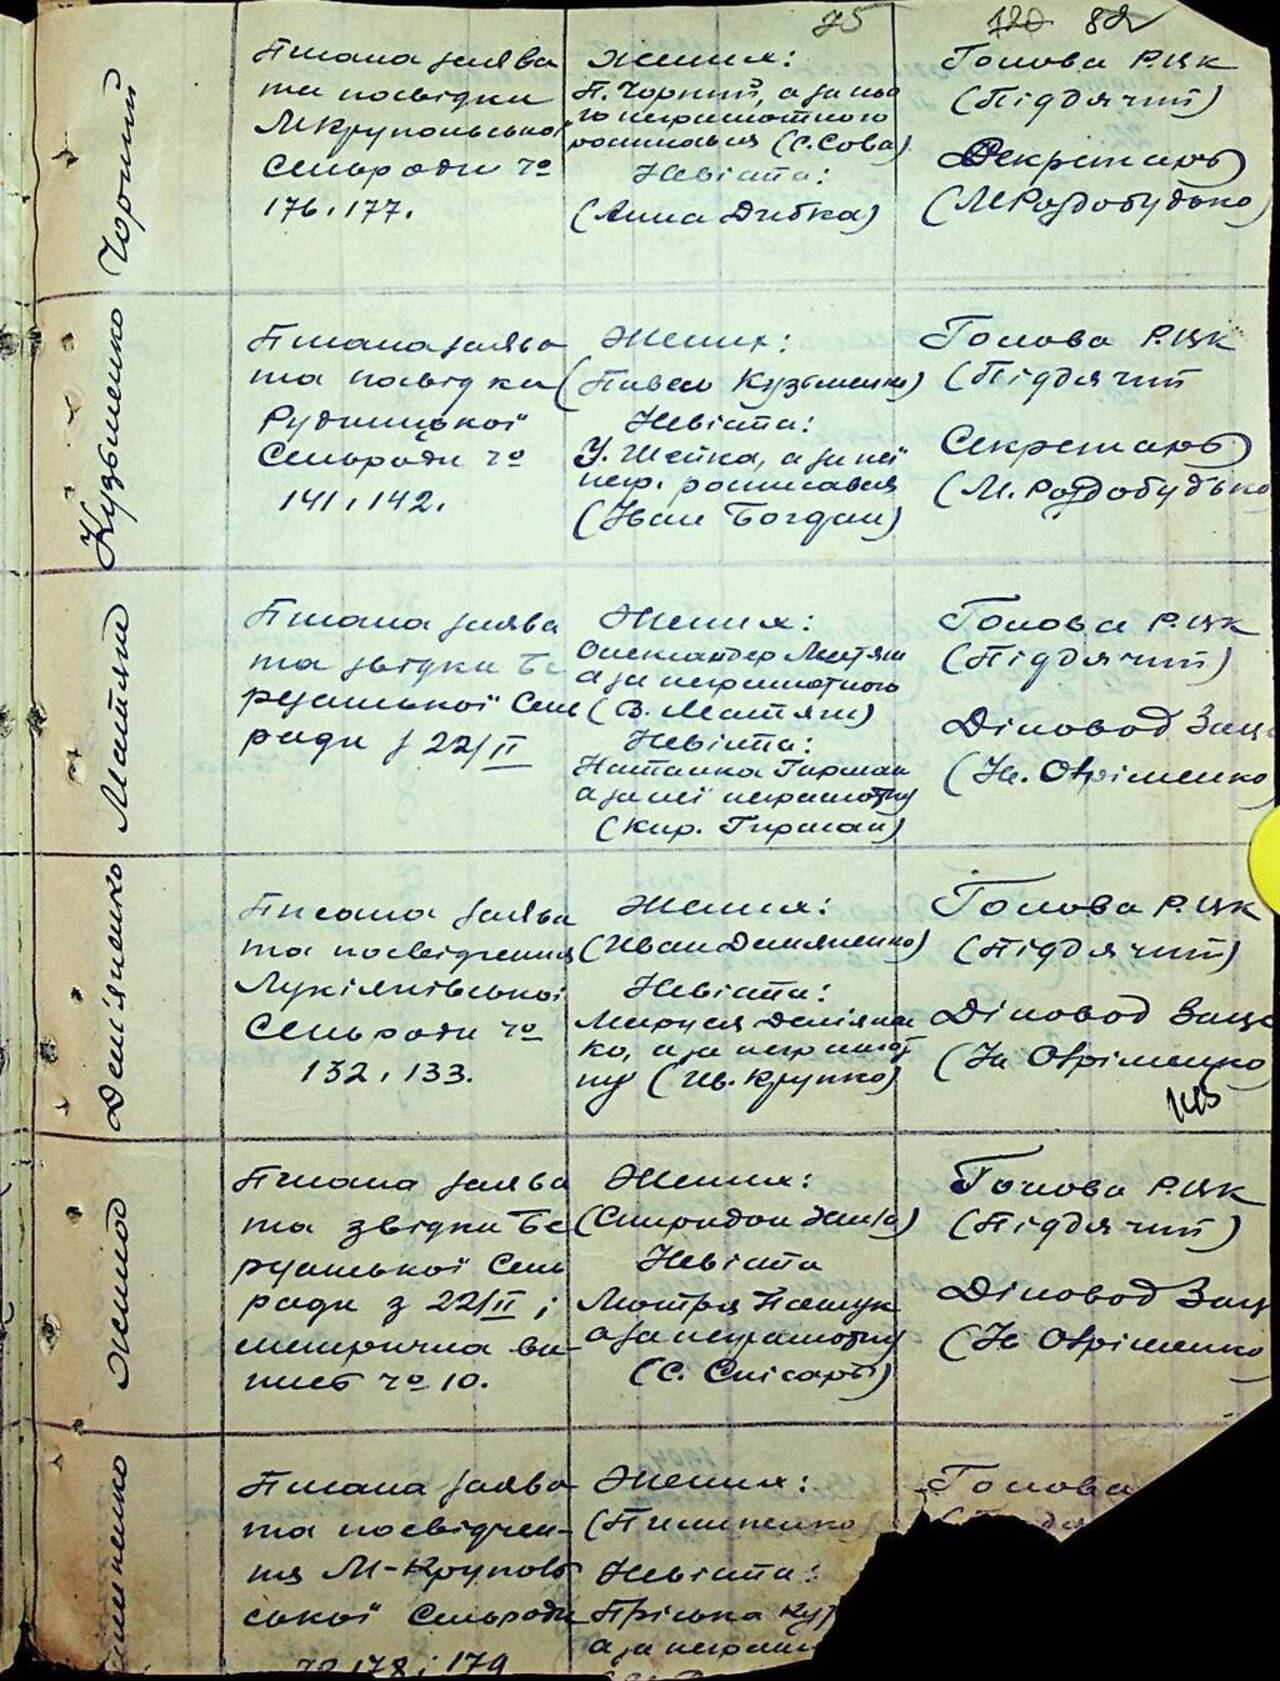 75
120 82
Чорний
Писана заява
та посвідки
М Крупольської
Сельради №
176, 177.
Жених:
П. Чорний, а за нь
го неграмотного
росписався (С. Сова)
Невіста:
(Анна Дибка)
Голова Р.ЦК
(Підлячий)
Секретарь
(М Роздобудько)
Кузьменко
Писана заява
та посвідки
Рудницької
Сельради №
141, 142.
Жених:
(Павел Кузьменко)
Невіста:
У. Шейка, а за неї
негр. росписався
(Іван Богдан)
Голова Р.ЦК
(Підлячий
Секретарь
(М. Роздобудько
Матяш
Писана заява
та звідки Бе
рзанської Сель
ради з 22/II
Жених:
Олександер Матяш
а за неграмотного
(В. Матяш)
Невіста:
Наталка Гирман
а за неї неграмотну
(Кир. Гирман)
Голова Р.ЦК
(Підлячий)
Діловод Загс
(Ів. Охріменко
Дем'яненко
Писана заява
та посвідчення
Лукіянівської
Сельради №
132, 133.
Жених:
(Иван Демяненко)
Невіста:
Маруся Деміянен
ко, а за неграмот
ну (Ив. Крупко)
Голова Р.ЦК
(Підлячий)
Діловод Загс
(Ів Охріменко
Писана заява
та звідки Бе
рзанської Сель
ради з 22/II;
метрична ви-
пись № 10.
Жених:
(Спиридон
Невіста
Мотря Пащук
а за неграмотну
(С. Слісарь)
Голова Р.ЦК
(Підлячий)
Діловод Заг
(Ів Охріменко
Писана заява
та посвідчен-
ня М-Круполь
ської Сельради
178, 179
Жених:
(Пилипенко
Невіста:
Пріська
а за неграм
Голова